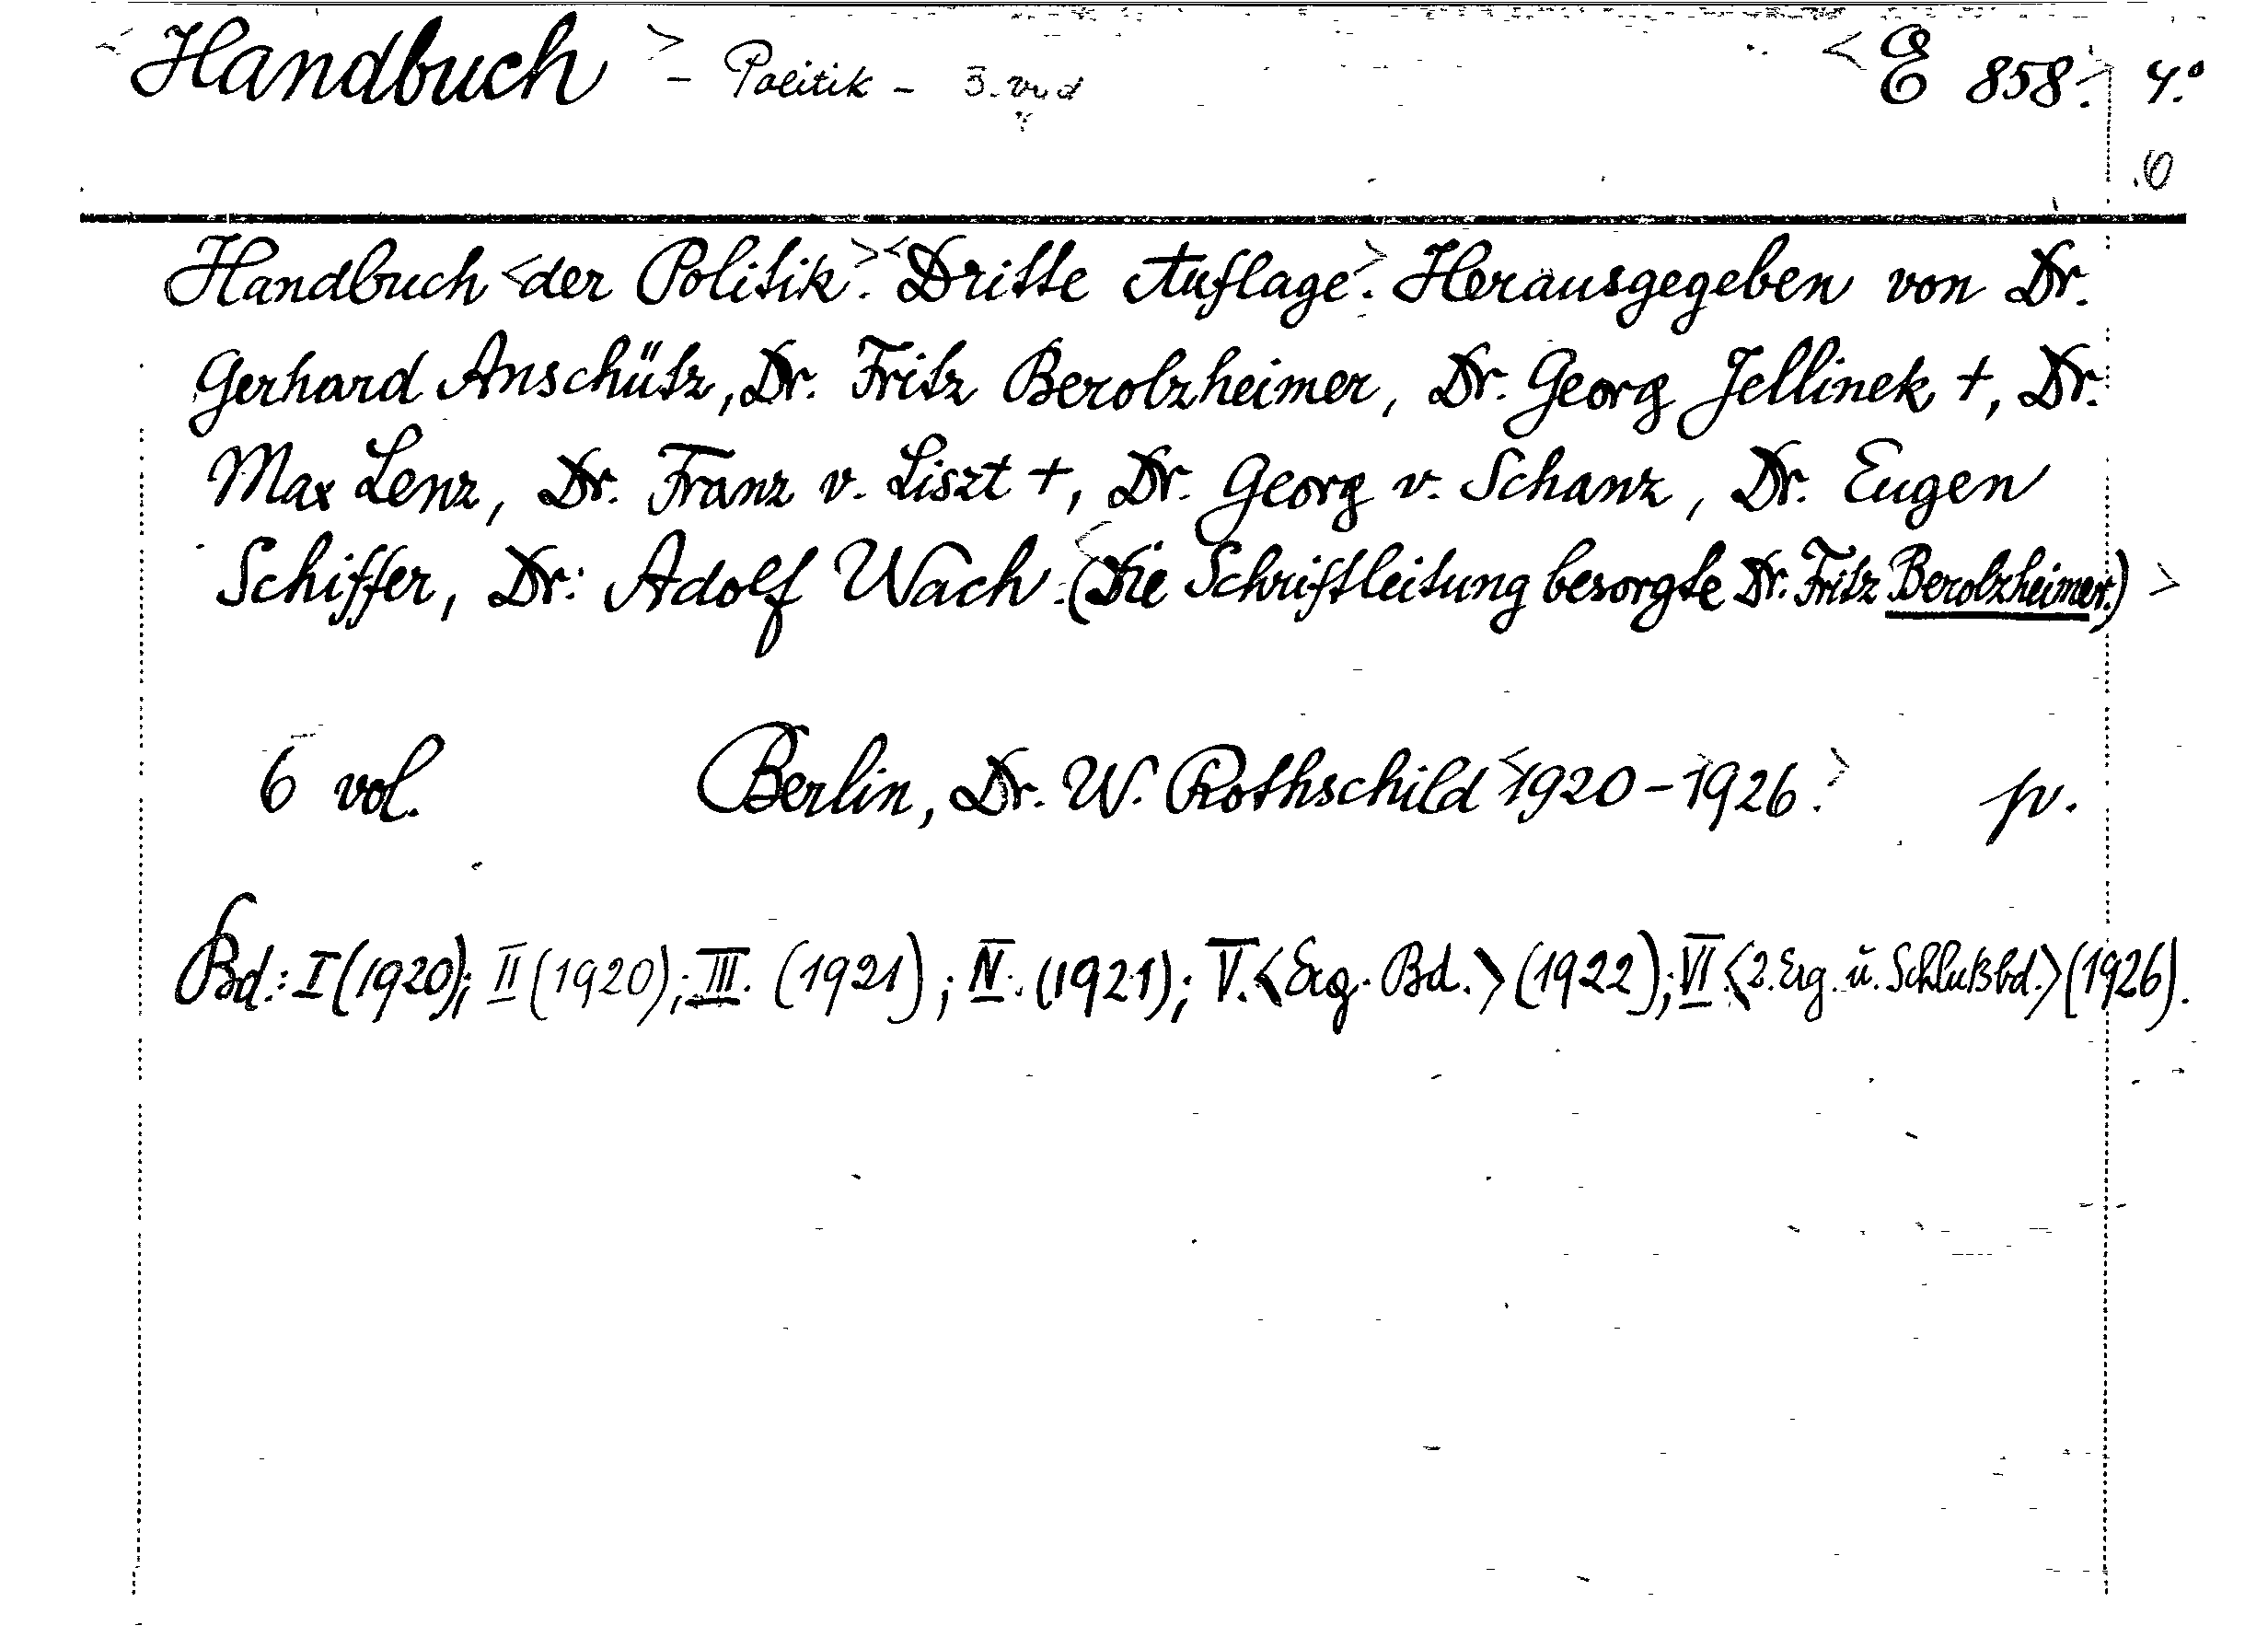 <Handbuch> - Politik - 3. <E 858.> 4.°
6
Handbuch <der Politik.> <Dritte Auflage.> Herausgegeben von Dr.
Gerhard Anschütz, Dr. Fritz Berolzheimer, Dr. Georg Jellinek †, Dr.
Max Lenz, Dr. Franz v. Liszt †, Dr. Georg v. Schanz, Dr. Eugen
Schiffer, Dr. Adolf Wach. <(Die Schriftleitung besorgte Dr. Fritz Berolzheimer.)>
6 vol. Berlin, Dr. W. Rothschild <1920-1926.> pr.
Bd.: I (1920); II (1920); III. (1921); IV. (1921); V. <Erg. Bd.> (1922); VI <2. Erg. u. Schlußbd.> (1926).